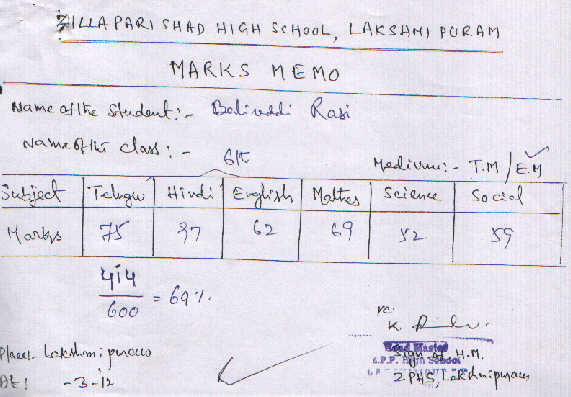 ZILLA PARISHAD HIGH SCHOOL, LAKSHMIPURAM
MARKS MEMO
Name of the Student:- Balivaddi Rasi
Name of the class:- 6th
Medium:- T.M / E.M
Subject Telugu Hindi English Maths Science Social
Marks 75 97 62 69 52 59
414
600 = 69%
K
Head Master
Sign of H.M.
Z.P.P. High School
ZPHS, Lakshmipuram
Place:- Lakshmipuram
Dt: -3-12